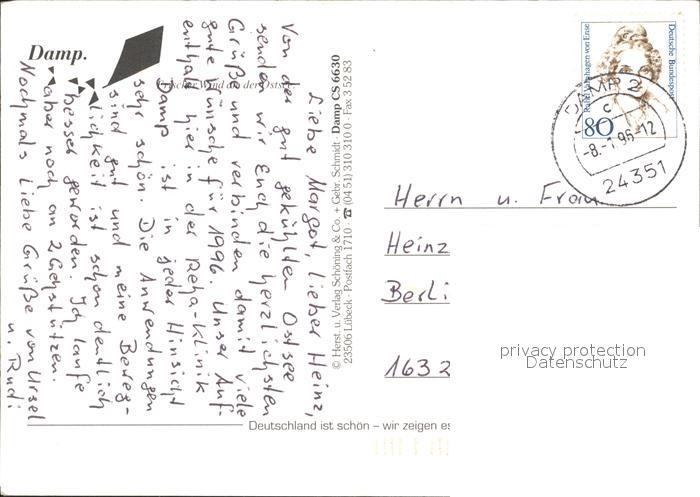 Damp.
Frischer Wind an der Ostsee
Liebe Margot, lieber Heinz,
Von der gut gekühlten Ostsee
senden wir Euch die herzlichsten
Grüße und verbinden damit viele
gute Wünsche für 1996. Unser Auf-
enthalt hier in der Reha-Klinik
Damp ist in jeder Hinsicht
sehr schön. Die Anwendungen
sind gut und meine Beweg-
lichkeit ist schon deutlich
besser geworden. Ich laufe
aber noch an 2 Gehstützen.
Nochmals liebe Grüße von Ursel
u. Rudi
© Herst. u. Verlag Schöning & Co. + Gebr. Schmidt · Damp CS 6630
23506 Lübeck · Postfach 1710 · ☎ (04 51) 310 310 0 · Fax 3 52 83
Deutschland ist schön – wir zeigen es
Rahel Varnhagen von Ense
Deutsche Bundespost
80
DAMP 2
c
-8.-1.96-12
24351
Herrn u. Frau
Heinz
Berli
1632
privacy protection
Datenschutz